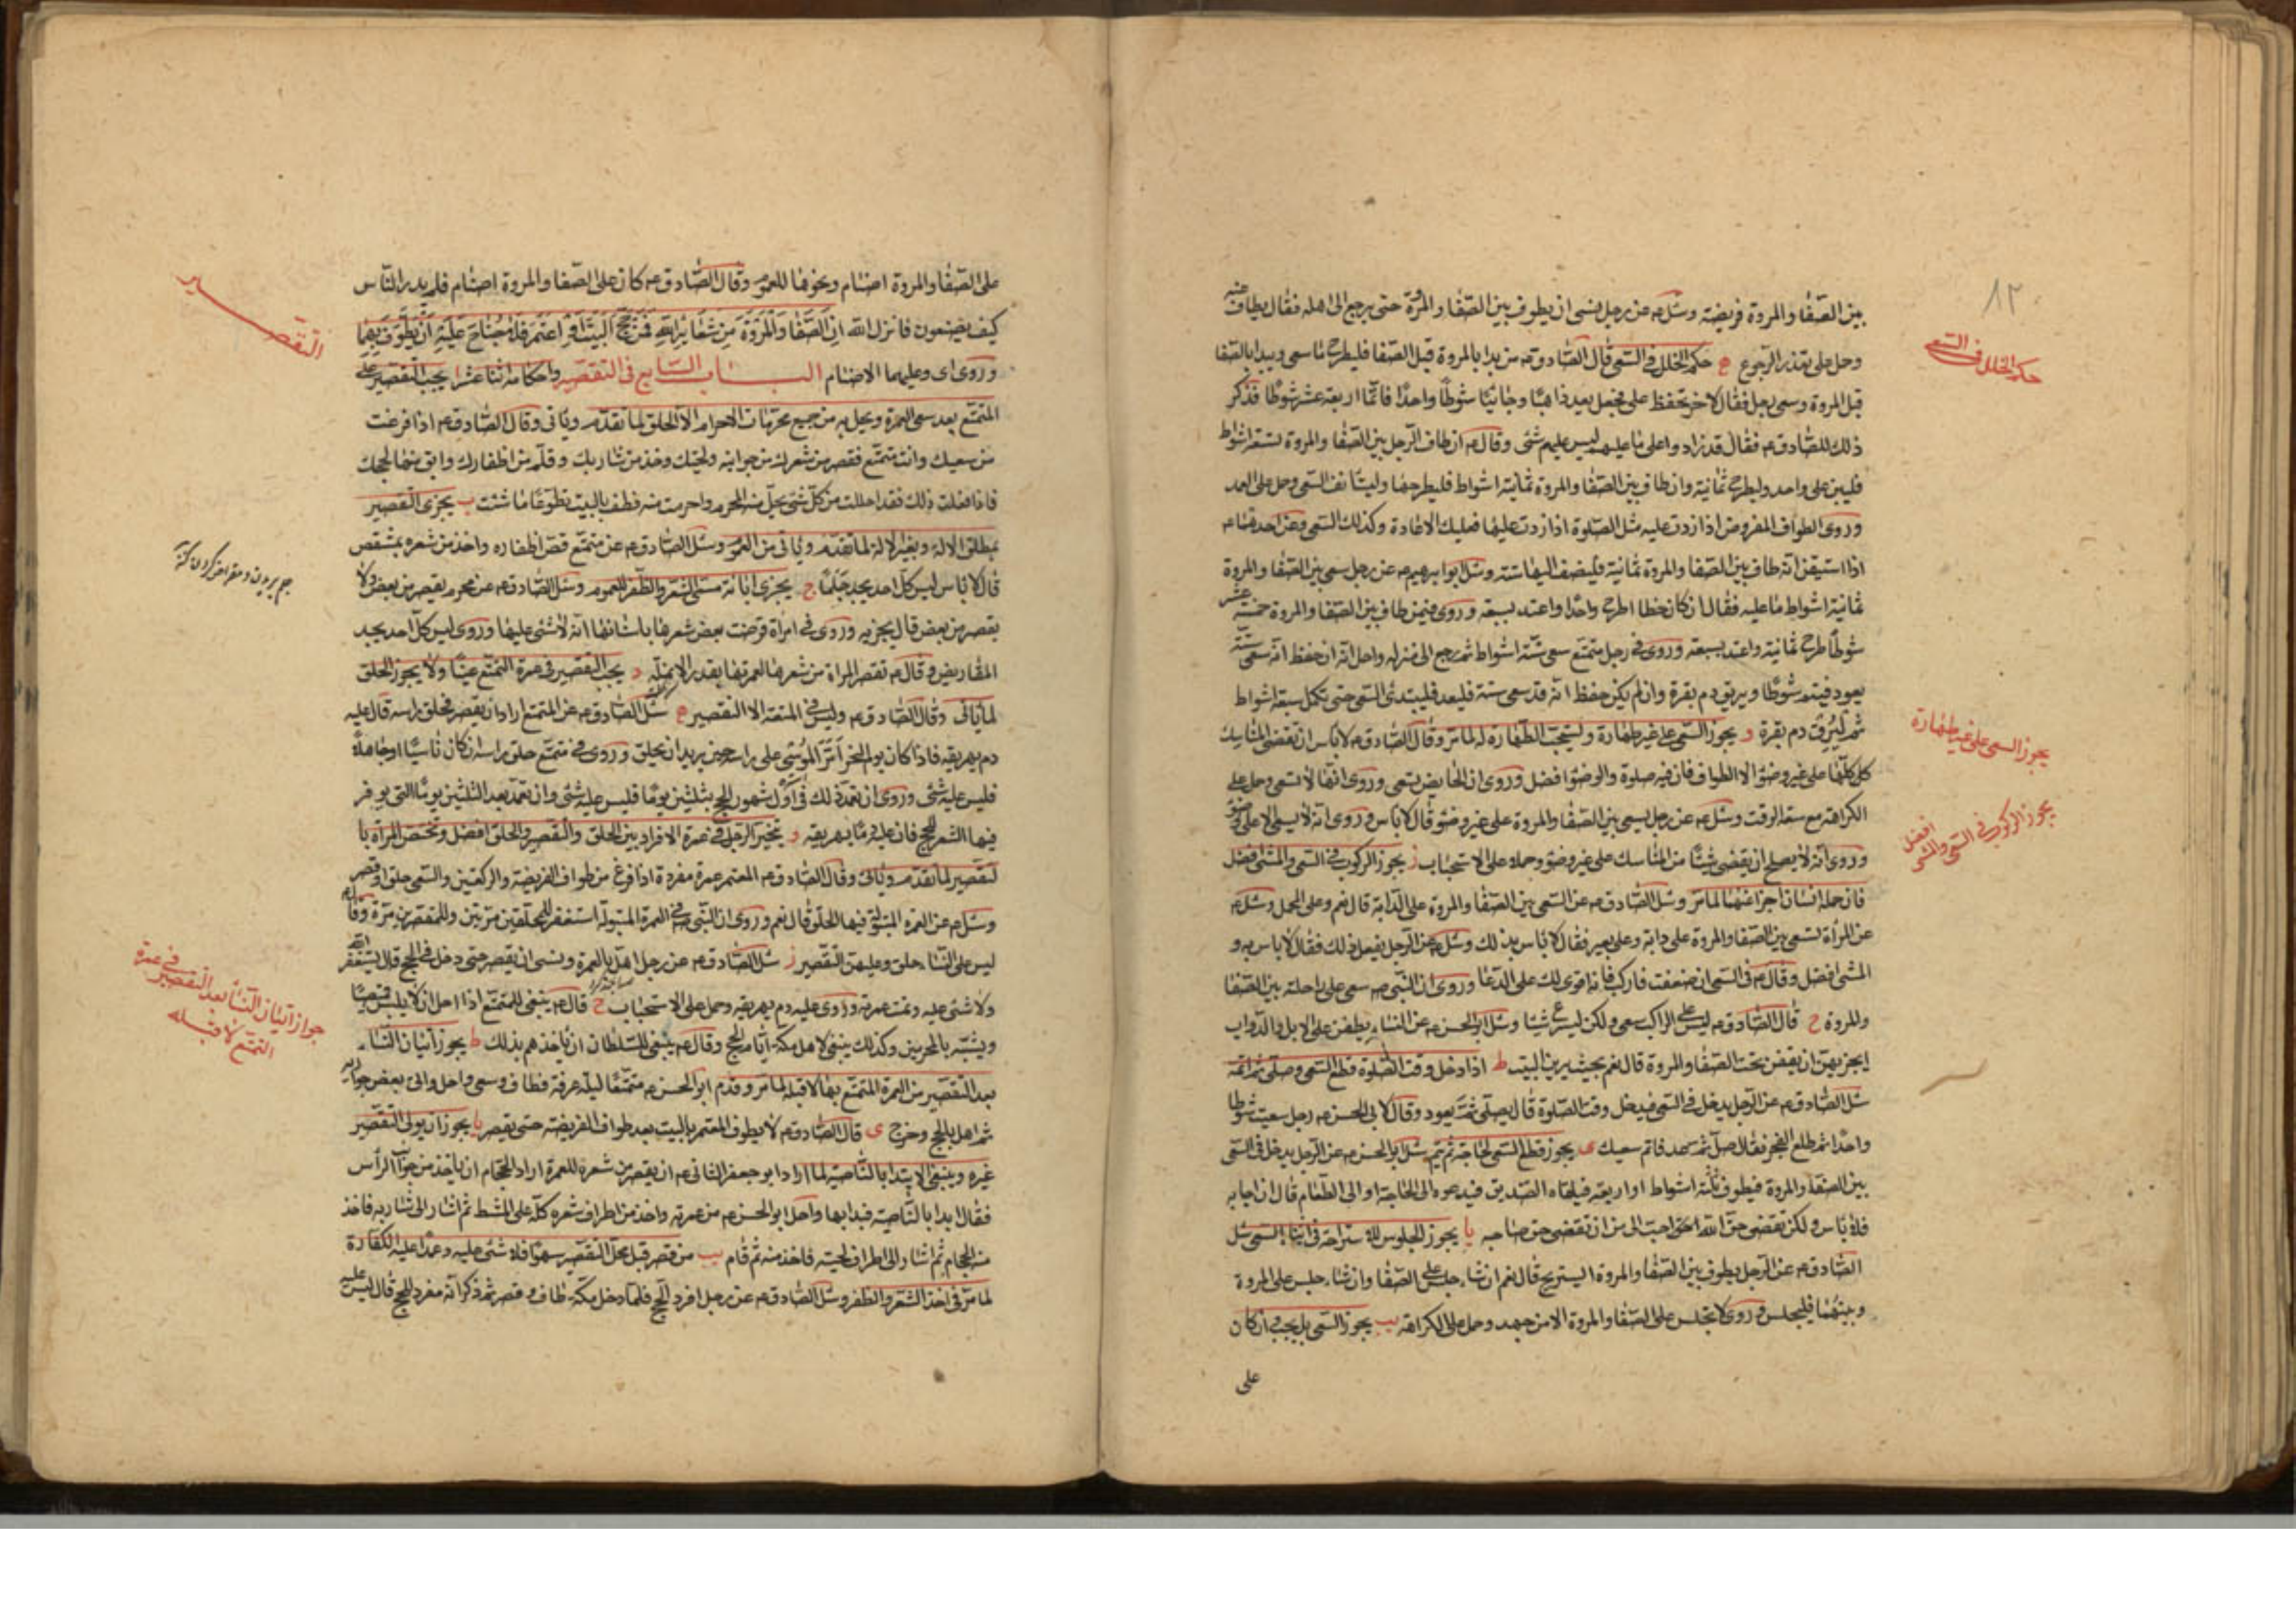 ٨٢
بين الصفا والمروة فريضة وسئل ع عن رجل نسى ان يطوف بين الصفا والمروة حتى يرجع الى اهله فقال يطاف عنه
وحمل على تعذر الرجوع ج حكم الخلل فى السعى قال الصادق ع من بدا بالمروة قبل الصفا فليطرح ما سعى ويبدا بالصفا
قبل المروة وسعى رجل فقال لاخر تحفظ على فجعل يعد ذاهبا وجائيا شوطا واحدا فاتما اربعة عشر شوطا فذكر
ذلك للصادق ع فقال قد زادوا على ما عليهم ليس عليهم شئ وقال ع ان طاف الرجل بين الصفا والمروة تسعة اشواط
فليبن على واحد وليطرح ثمانية وان طاف بين الصفا والمروة ثمانية اشواط فليطرحها وليستانف السعى وحمل على العمد
وروى الطواف المفروض اذا زدت عليه مثل الصلوة اذا زدت عليها فعليك الاعادة وكذلك السعى وعن احدهما ع
اذا استيقن انه طاف بين الصفا والمروة ثمانية فليضف اليها ستة وسئل ابو ابرهيم ع عن رجل سعى بين الصفا والمروة
ثمانية اشواط ما عليه فقال ان كان خطا اطرح واحدا واعتد بسبعة وروى فيمن طاف بين الصفا والمروة خمسة عشر
شوطا طرح ثمانية واعتد بسبعة وروى فى رجل متمتع سعى ستة اشواط ثم رجع الى منزله واحل انه ان حفظ انه سعى ستة
يعود فيتم شوطا ويريق دم بقرة وان لم يكن حفظ انه قد سعى ستة فليعد فليبتدئ السعى حتى تكمل سبعة اشواط
ثم ليرق دم بقرة د يجوز السعى على غير طهارة وتستحب الطهارة له لما مر وقال الصادق ع لا باس ان تقضى المناسك
كل كلها على غير وضوء الا الطواف فان فيه صلوة والوضوء افضل وروى ان الحايض تسعى وروى انها لا تسعى وحمل على
الكراهة مع سعة الوقت وسئل ع عن رجل يسعى بين الصفا والمروة على غير وضوء قال لا باس وروى انه لا يسعى الا على وضوء
وروى انه لا يصلح ان يقضى شيئا من المناسك على غير وضوء وحمله على الاستحباب ز يجوز الركوب فى السعى والمشى افضل
فان حمله انسان اجزا عنهما لما مر وسئل الصادق ع عن السعى بين الصفا والمروة على الدابة قال نعم وعلى المحمل وسئل ع
عن المرأة تسعى بين الصفا والمروة على دابة وعلى بعير فقال لا باس بذلك وسئل ع عن الرجل يفعل ذلك فقال لا باس به و
المشى افضل وقال ع فى السعى ان ضعفت فاركب فانه اقوى لك على الدعا وروى ان النبى ص سعى على راحلته بين الصفا
والمروة ح قال الصادق ع ليس على الراكب سعى ولكن ليسرع شيئا وسئل ابو الحسن ع عن النساء يطفن على الابل والدواب
ايجزيهن ان يقفن تحت الصفا والمروة قال نعم بحيث يرين البيت ط اذا دخل وقت الصلوة قطع السعى وصلى ثم اتمه
سئل الصادق ع عن الرجل يدخل فى السعى فيدخل وقت الصلوة قال يصلى ثم يعود وقال لابى الحسن ع رجل سعيت شوطا
واحدا ثم طلع الفجر فقال صل ثم عد فاتم سعيك ى يجوز قطع السعى لحاجة ثم يتم سئل ابو الحسن ع عن الرجل يدخل فى السعى
بين الصفا والمروة فيطوف ثلثة اشواط او اربعة فيلقاه الصديق فيدعوه الى الحاجة او الى الطعام قال ان اجابه
فلا باس ولكن تقضى حق الله احب الى من ان تقضى حق صاحبه يا يجوز الجلوس للاستراحة فى اثناء السعى سئل
الصادق ع عن الرجل يطوف بين الصفا والمروة ايستريح قال نعم ان شاء جلس على الصفا وان شاء جلس على المروة
وبينهما فليجلس وروى لا تجلس على الصفا والمروة الا من جهد وحمل على الكراهة يب يجوز السعى بل يجب وان كان
على
حكم الخلل فى السعى
يجوز السعى على غير طهارة
يجوز الركوب فى السعى والمشى افضل
على الصفا والمروة اصنام ونحوها للعموم وقال الصادق ع كان على الصفا والمروة اصنام فلم يدر الناس
كيف يصنعون فانزل الله ان الصفا والمروة من شعاير الله فمن حج البيت او اعتمر فلا جناح عليه ان يطوف بهما
وروى اى وعليهما الاصنام الباب السابع فى التقصير واحكامه اثنا عشر ا يجب التقصير على
المتمتع بعد سعى العمرة ويحل به من جميع محرمات الاحرام الا الحلق لما تقدم وياتى وقال الصادق ع اذا فرغت
من سعيك وانت متمتع فقصر من شعرك من جوانبه ولحيتك وخذ من شاربك وقلم من اظفارك وابق منها لحجك
فاذا فعلت ذلك فقد احللت من كل شئ يحل منه المحرم واحرمت منه فطف بالبيت تطوعا ما شئت ب يجزى التقصير
بمطلق الالة وبغير الالة لما تقدم وياتى من العموم وسئل الصادق ع عن متمتع قص اظفاره واخذ من شعره بمشقص
قال لا باس ليس كل احد يجد جلما ج يجزى ابانة مسمى الشعر والظفر للعموم وسئل الصادق ع عن محرم يقصر من بعض ولا
يقصر من بعض قال يجزيه وروى فى امراة قرضت بعض شعرها باسنانها انه لا شئ عليها وروى ليس كل احد يجد
المقاريض وقال ع تقصر المراة من شعرها لعمرتها بقدر الانملة د يجب التقصير فى عمرة التمتع عينا ولا يجوز الحلق
لما ياتى وقال الصادق ع وليس فى المتعة الا التقصير ه سئل الصادق ع عن المتمتع اراد ان يقصر فحلق راسه قال عليه
دم يهريقه فاذا كان يوم النحر امر الموسى على راسه حين يريد ان يحلق وروى فى متمتع حلق راسه ان كان ناسيا او جاهلا
فليس عليه شئ وروى ان تعمد ذلك فى اول شهور الحج بثلثين يوما فليس عليه شئ وان تعمد بعد الثلثين يوما التى يوفر
فيها الشعر للحج فان عليه دما يهريقه و يتخير الرجل فى عمرة الافراد بين الحلق والتقصير والحلق افضل وتختص المراة با
لتقصير لما تقدم وياتى وقال الصادق ع المعتمر عمرة مفردة اذا فرغ من طواف الفريضة والركعتين والسعى حلق او قصر
وسئل ع عن العمرة المبتولة فيها الحلق قال نعم وروى ان النبى ص فى العمرة المبتولة استغفر للمحلقين مرتين وللمقصرين مرة وقال ع
ليس على النساء حلق وعليهن التقصير ز سئل الصادق ع عن رجل اهل بالعمرة ونسى ان يقصر حتى دخل فى الحج قال يستغفر الله
ولا شئ عليه وتمت عمرته وروى عليه دم يهريقه وحمل على الاستحباب ح قال ع ينبغى للمتمتع اذا احل ان لا يلبس قميصا
ويتشبه بالمحرمين وكذلك ينبغى لاهل مكة ايام الحج وقال ع ينبغى للسلطان ان ياخذهم بذلك ط يجوز اتيان النساء
بعد التقصير من العمرة المتمتع بها لا قبله لما مر وقدم ابو الحسن ع متمتعا ليلة عرفة فطاف وسعى واحل واتى بعض جواريه
ثم اهل بالحج وخرج ى قال الصادق ع لا يطوف المعتمر بالبيت بعد طواف الفريضة حتى يقصر يا يجوز ان يولى التقصير
غيره وينبغى الابتدا بالناصية لما اراد ابو جعفر الثانى ع ان يقصر من شعره للعمرة اراد الحجام ان ياخذ من جوانب الرأس
فقال ابدا بالناصية فبدا بها واحل ابو الحسن ع من عمرته واخذ من اطراف شعره كله على المشط ثم اشار الى شاربه فاخذ
منه الحجام ثم اشار الى اطراف لحيته فاخذ منه ثم قام يب من قصر قبل محل التقصير سهوا فلا شئ عليه وعمدا عليه الكفارة
لما مر فى اخذ الشعر والظفر وسئل الصادق ع عن رجل افرد الحج فلما دخل مكة طاف وقصر ثم ذكر انه مفرد للحج قال ليس عليه
التقصير
جواز اتيان النساء بعد التقصير فى عمرة
التمتع لا قبله